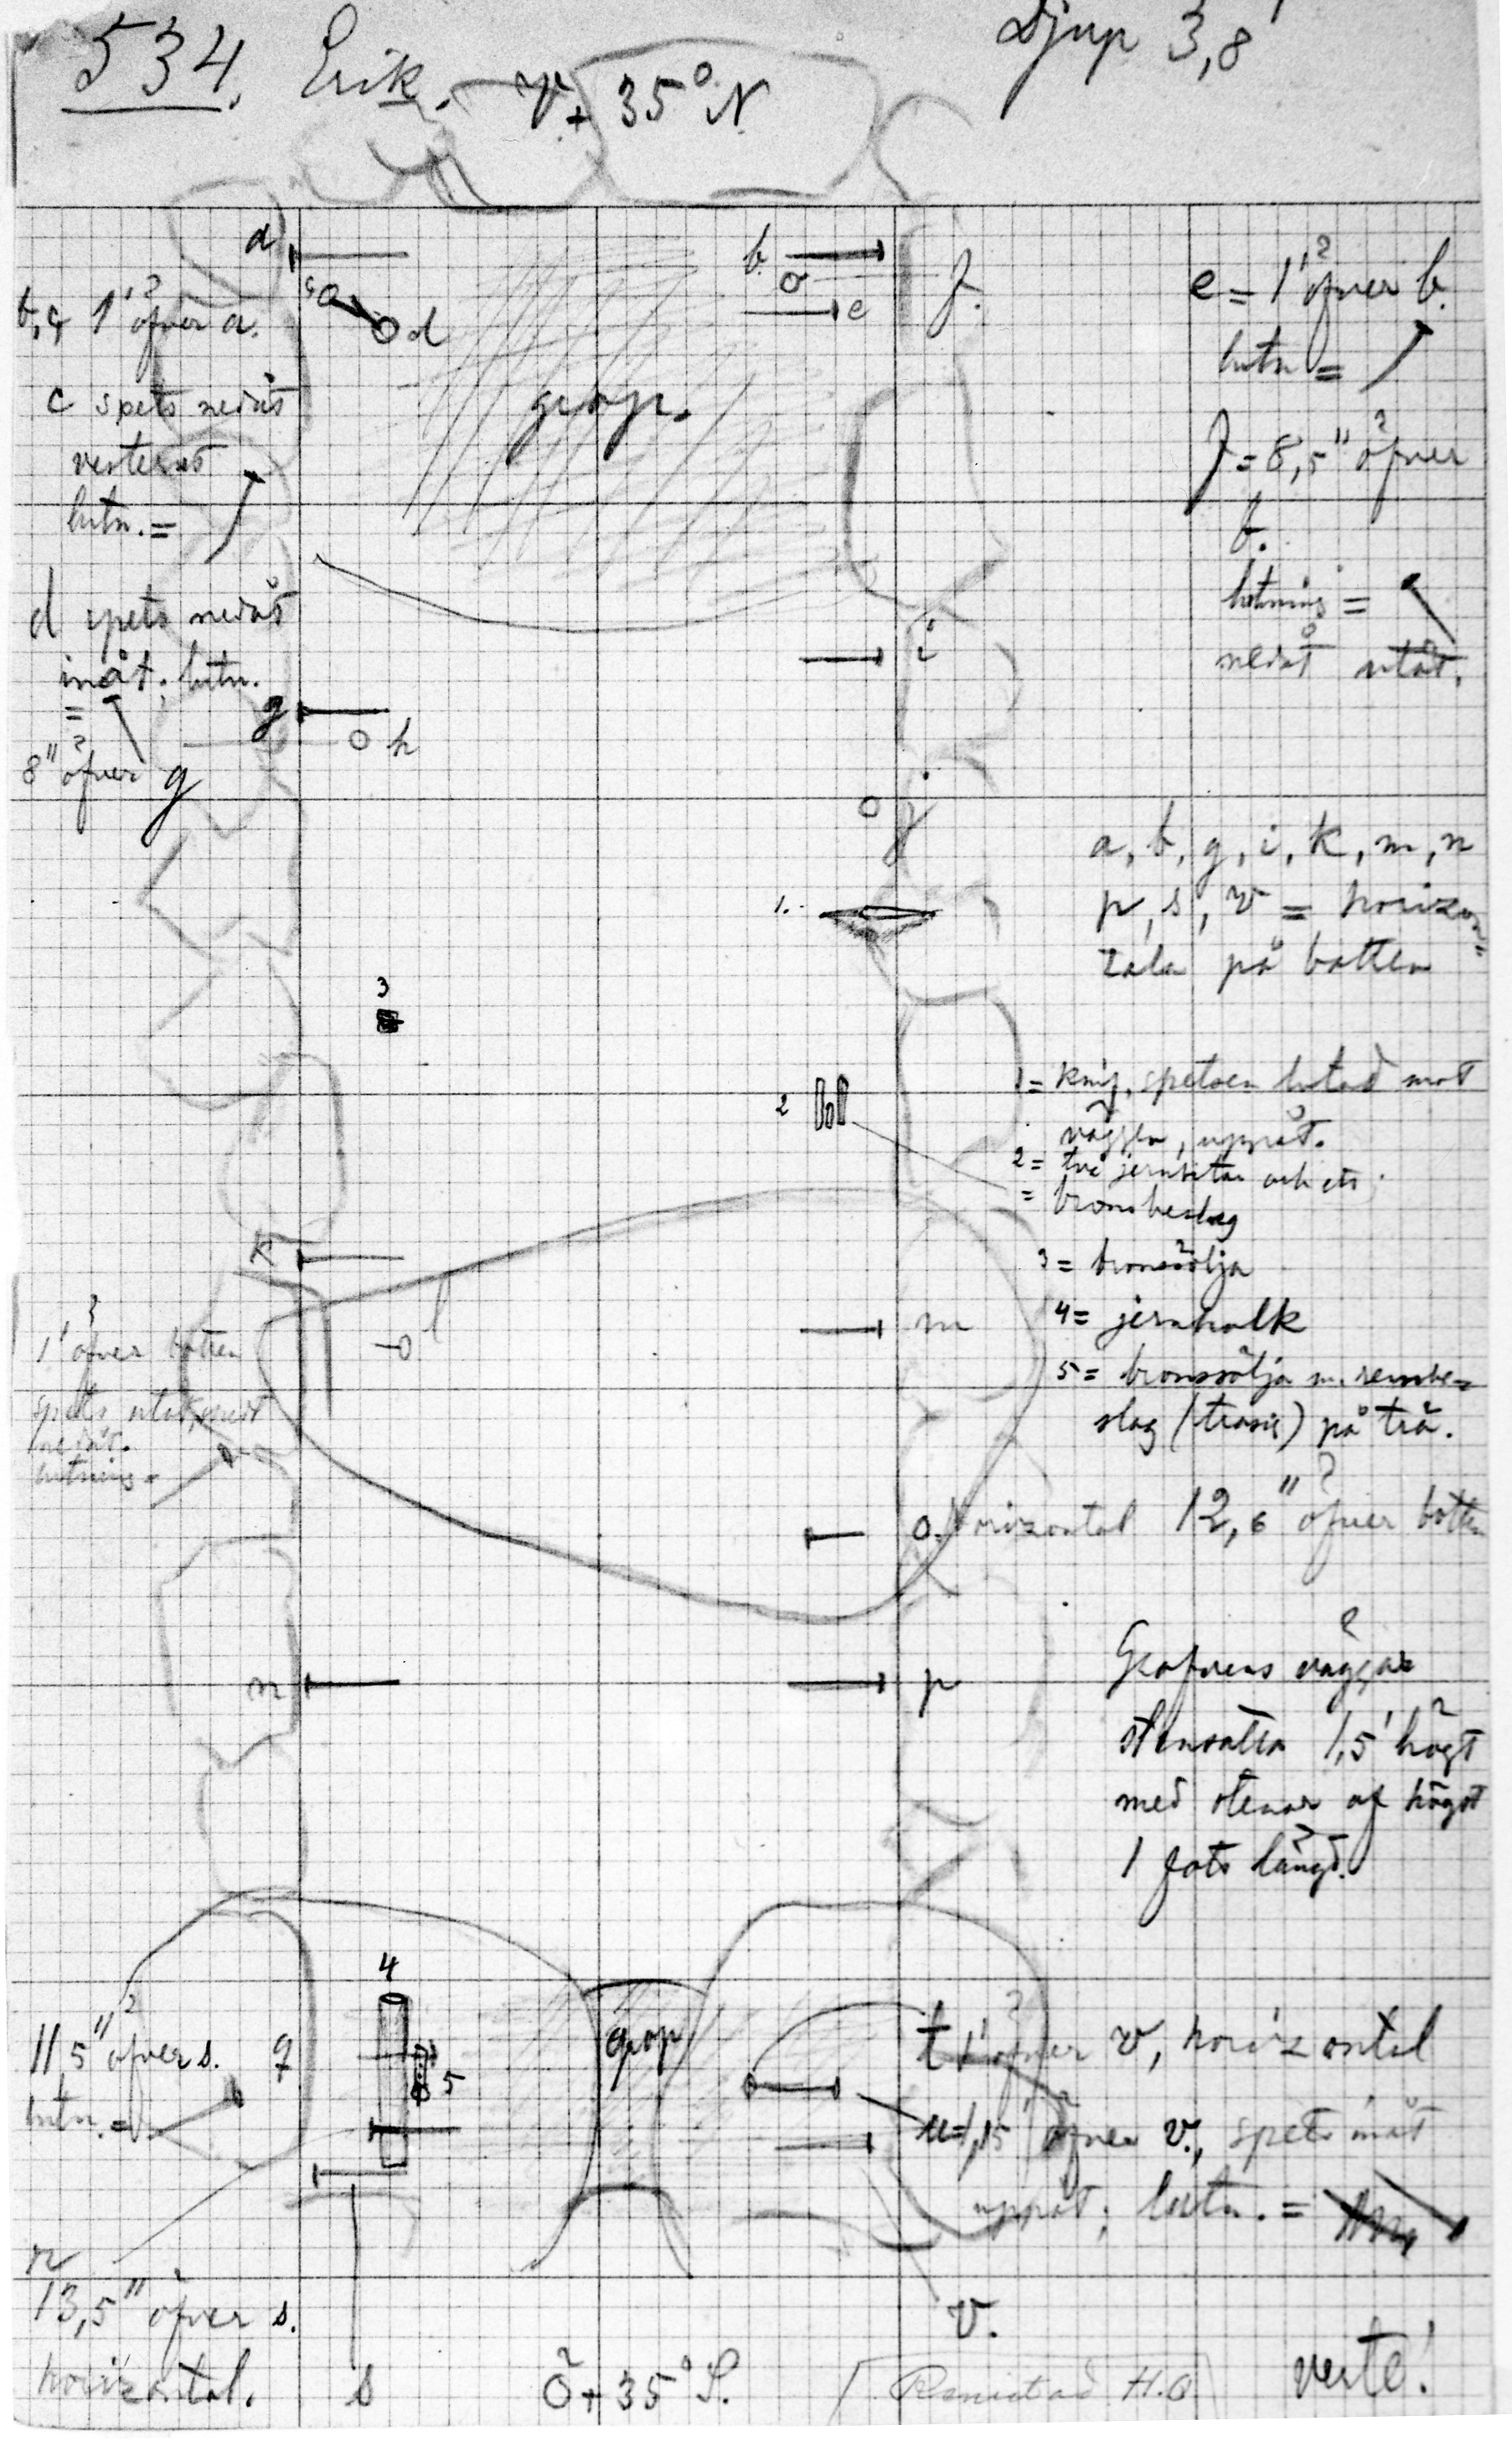 534. Erik. V + 35° N.
Djup 3,8'
a
b.
f.
c
d
e
b, c, 1' öfver a.
e = 1' öfver b.
lutn =
grop.
c spets nedåt
vesterut
lutn. =
f = 8,5" öfver
b.
lutning =
nedåt utåt.
d spets nedåt
inåt; lutn.
=
8" öfver g
i
g
h
j
a, b, g, i, k, m, n
p, s, v = horizon=
tala på botten
1.
3
2
1 = knif, spetsen lutad mot
väggen, uppåt.
2 = två jernbitar och ett
= bronsbeslag
3 = bronssölja
4 = jernholk
5 = bronssölja m. rembe=
slag (trasig) på trä.
k
l
m
1' öfver botten
spets utåt,
nedåt.
lutning =
o. horizontal 12,6" öfver botten
n
p
Grafvens väggar
stensatta 1,5' högt
med stenar af högst
1 fots längd.
4
grop
5
11 5" öfver s. q
lutn. =
t 1' öfver v, horizontal
u = 1,15' öfver v., spets inåt
uppåt; lutn. =
r
13,5" öfver s.
horizontal.
s
v.
Ö + 35° S.
Renritad H.A
verte!